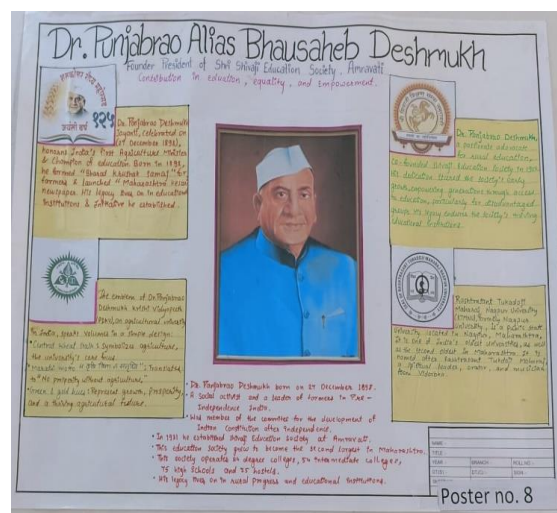 Dr. Punjabrao Alias Bhausaheb Deshmukh
Founder President of Shri Shivaji Education Society, Amravati
Contribution in education, equality, and empowerment.
१२५
जयंती वर्ष
Dr. Punjabrao Deshmukh
Jayanti, celebrated on
(27 December 1898),
honours India's First Agriculture Minister
& Champion of education Born in 1898,
he formed "Bharat Krushak Samaj" for
farmers & launched "Maharashtra Kesari
newspaper. His legacy lives on in educational
Institutions & Initiative he established.
Dr. Punjabrao Deshmukh,
a passionate advocate
for rural education,
co-founded Shivaji Education Society in
His dedication fueled the society's early
growth, empowering generations through access
to education, particularly for disadvantaged
groups. His legacy endures the society's thriving
educational institutions.
The emblem of Dr. Punjabrao
Deshmukh Krishi Vidyapeeth
(PDKV), an agricultural university
In India, speaks volumes in a simple design:
Central Wheat Stalk: Symbolizes agriculture,
the university's core focus.
Translates
to "No prosperity without agriculture."
Green & gold hues: Represent growth, prosperity
and a thriving agricultural future.
Rashtrasant Tukadoji
Maharaj Nagpur University
formerly Nagpur
University, is a public state
University located in Nagpur, Maharashtra.
It is one of India's oldest Universities, as well
as the second oldest in Maharashtra. It is
named after Rashtrasant Tukdoji Maharaj,
a spiritual leader, orator, and musician
from Vidarbha
Dr. Panjabrao Deshmukh born on 27 December 1898.
A Social activist and a leader of farmers in Pre-
Independence India.
Was member of the committee for the development of
Indian Constitution after Independence.
In 1931 he established Shivaji Education Society at Amravati.
This education society grew to become the second largest in Maharashtra.
This society operates degree colleges, 54 intermediate colleges,
75 high Schools and 25 hostels.
His legacy lives on in rural progress and educational Institutions.
NAME :
TITLE :
YEAR BRANCH : ROLL NO :
Poster no. 8